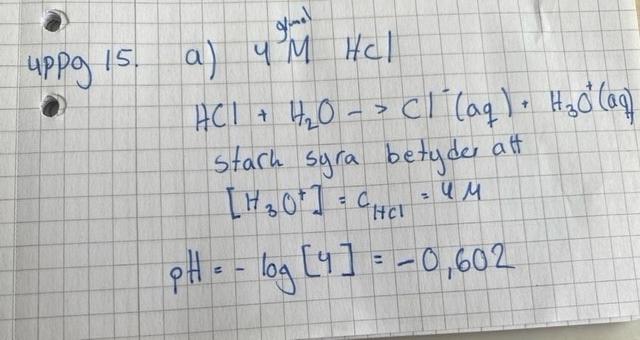 uppg 15. a) 4 M g/mol HCl
HCl + H₂O -> Cl⁻(aq) + H₃O⁺(aq)
stach syra betyder att
[H₃O⁺] = C_HCl = 4 M
pH = - log [4] = -0,602